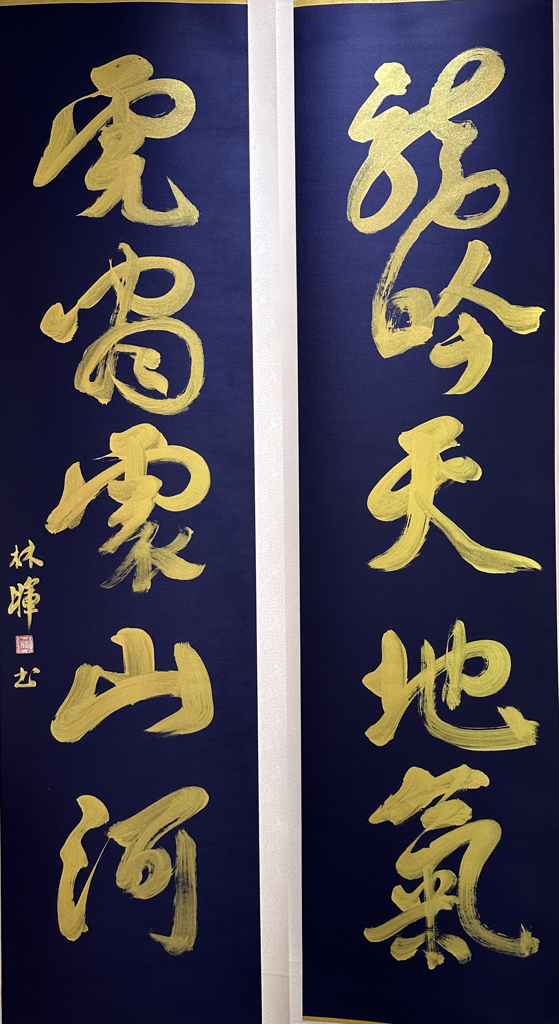 龍吟天地氣
虎嘯震山河
林暉书